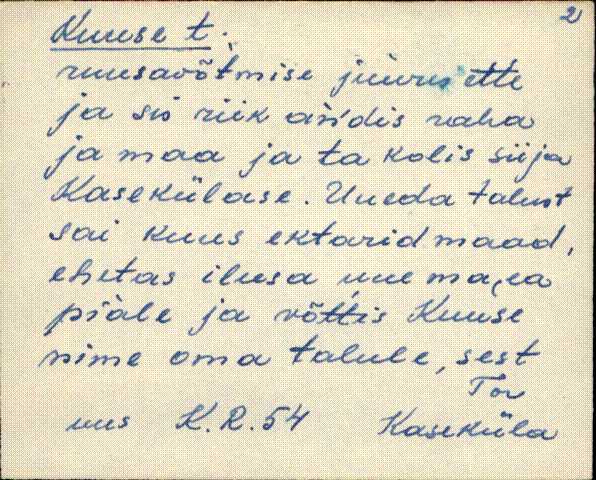 2
Kuuse t.
ruusavõtmise juures ette
ja sis riik an'dis raha
ja maa ja ta kolis siija
Kasekülase. Uueda talust
sai kuus ektarid maad,
ehitas ilusa uue maea
piale ja võttis Kuuse
nime oma talule, sest
Tor
uus K.R.54 Kaseküla